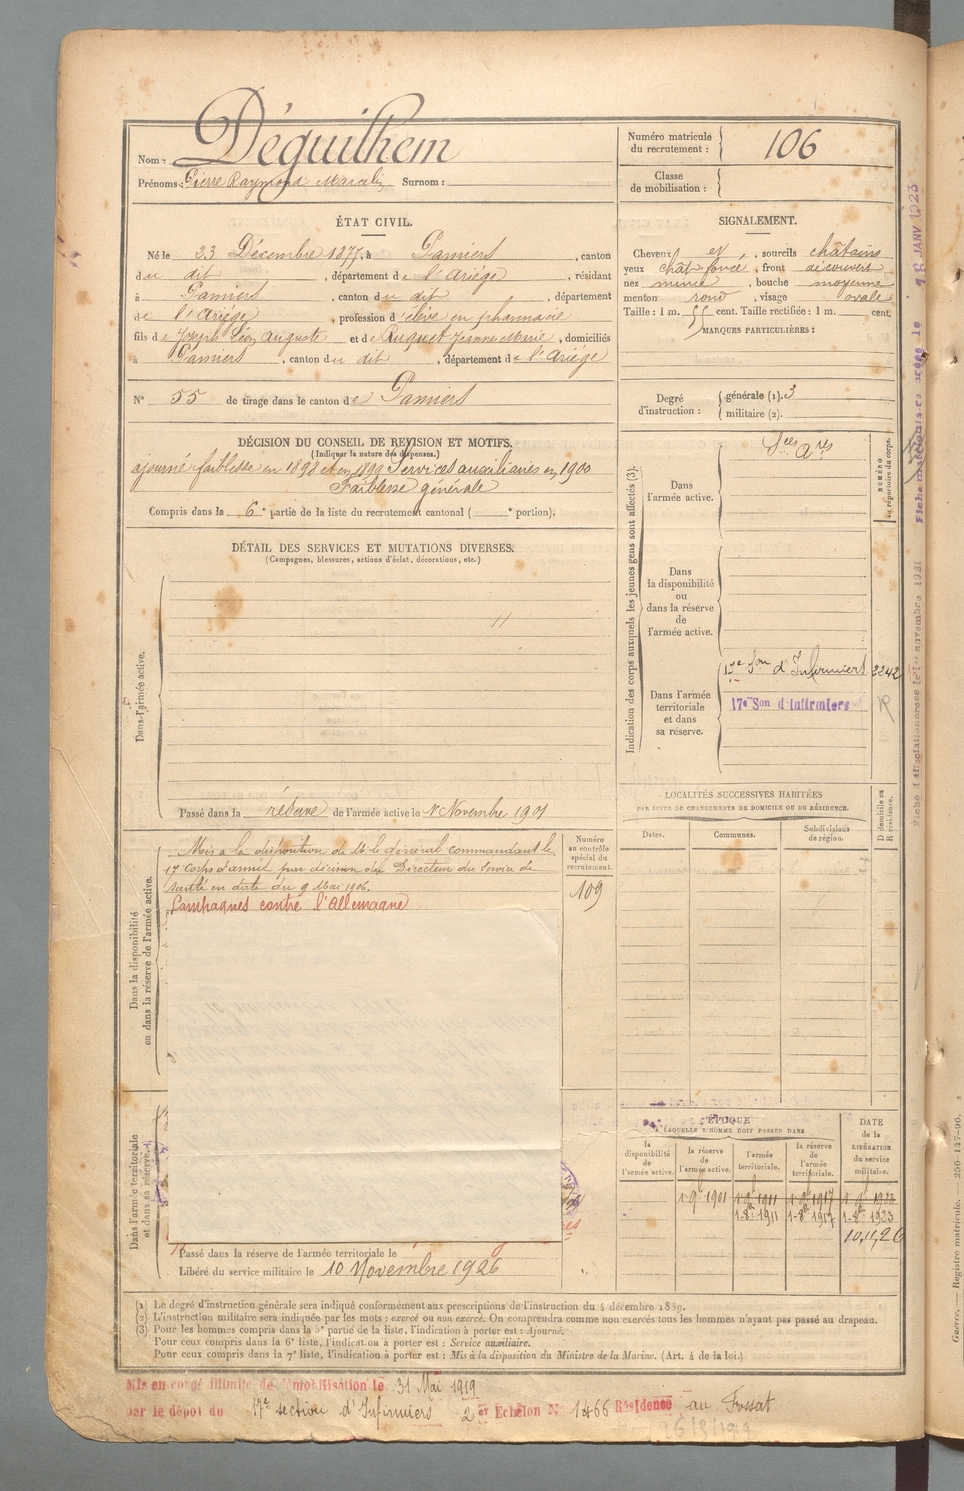 Nom : Déguilhem
Prénoms : Pierre Raymond Marcelin Surnom :
Numéro matricule du recrutement : 106
Classe de mobilisation :
ÉTAT CIVIL.
Né le 23 Décembre 1877, à Pamiers, canton
du dit, département de l'Ariège, résidant
à Pamiers, canton du dit, département
de l'Ariège, profession d'élève en pharmacie
fils de Joseph Léon Auguste et de Ruquet Jeanne Marie, domiciliés
à Pamiers, canton du dit, département de l'Ariège
SIGNALEMENT.
Cheveux et, sourcils châtains
yeux chât foncé, front découvert
nez mince, bouche moyenne
menton rond, visage ovale
Taille : 1 m. 55 cent. Taille rectifiée : 1 m. cent.
MARQUES PARTICULIÈRES :
N° 55 de tirage dans le canton de Pamiers
Degré d'instruction : générale (1). 3
militaire (2).
DÉCISION DU CONSEIL DE REVISION ET MOTIFS.
(Indiquer la nature des dispenses.)
ajourné faiblesse en 1898 et en 1899 Services auxiliaires en 1900
Faiblesse générale
Compris dans la 6e partie de la liste du recrutement cantonal ( e portion).
DÉTAIL DES SERVICES ET MUTATIONS DIVERSES.
(Campagnes, blessures, actions d'éclat, décorations, etc.)
Dans l'armée active.
Passé dans la réserve de l'armée active le 1r Novembre 1901
Indication des corps auxquels les jeunes gens sont affectés (3).
NUMÉRO au répertoire du corps.
Dans l'armée active.
Sces Ares
Dans la disponibilité ou dans la réserve de l'armée active.
Dans l'armée territoriale et dans sa réserve.
Son d'Infirmiers 2242
17e Son d'Infirmiers
R
Dans la disponibilité ou dans la réserve de l'armée active.
Mis à la disposition de M. le général commandant le
17 corps d'armée par décision du Directeur du Service de
santé en date du 9 Mai 1906.
Campagnes contre l'Allemagne
Numéro au contrôle spécial du recrutement.
109
LOCALITÉS SUCCESSIVES HABITÉES
PAR SUITE DE CHANGEMENTS DE DOMICILE OU DE RÉSIDENCE.
Dates. Communes. Subdivisions de région. D domicile ou R résidence.
Dans l'armée territoriale et dans sa réserve.
ÉPOQUE
A LAQUELLE L'HOMME DOIT PASSER DANS
la disponibilité de l'armée active.
la réserve de l'armée active.
l'armée territoriale.
la réserve de l'armée territoriale.
DATE de la LIBÉRATION du service militaire.
1-9e 1901 1-9e 1911 1-9e 1917 1-9e 1923
1-8e 1911 1-8e 1917 1-8e 1923
10.11.26
Passé dans la réserve de l'armée territoriale le
Libéré du service militaire le 10 Novembre 1926
(1) Le degré d'instruction générale sera indiqué conformément aux prescriptions de l'instruction du 4 décembre 1889.
(2) L'instruction militaire sera indiquée par les mots : exercé ou non exercé. On comprendra comme non exercés tous les hommes n'ayant pas passé au drapeau.
(3) Pour les hommes compris dans la 5e partie de la liste, l'indication à porter est : Ajourné.
Pour ceux compris dans la 6e liste, l'indication à porter est : Service auxiliaire.
Pour ceux compris dans la 7e liste, l'indication à porter est : Mis à la disposition du Ministre de la Marine. (Art. 4 de la loi.)
Mis en congé illimité de démobilisation le 31 Mai 1919
par le dépôt du 17e section d'Infirmiers 2er Echelon N° 1466 Résidence au Fossat
26/8/1919
Fiche d'affectation créée le 1er novembre 1921
Fiche matriculaire créée le 18 JANV 1923
Guerre. — Registre matricule. — 256-147-06.